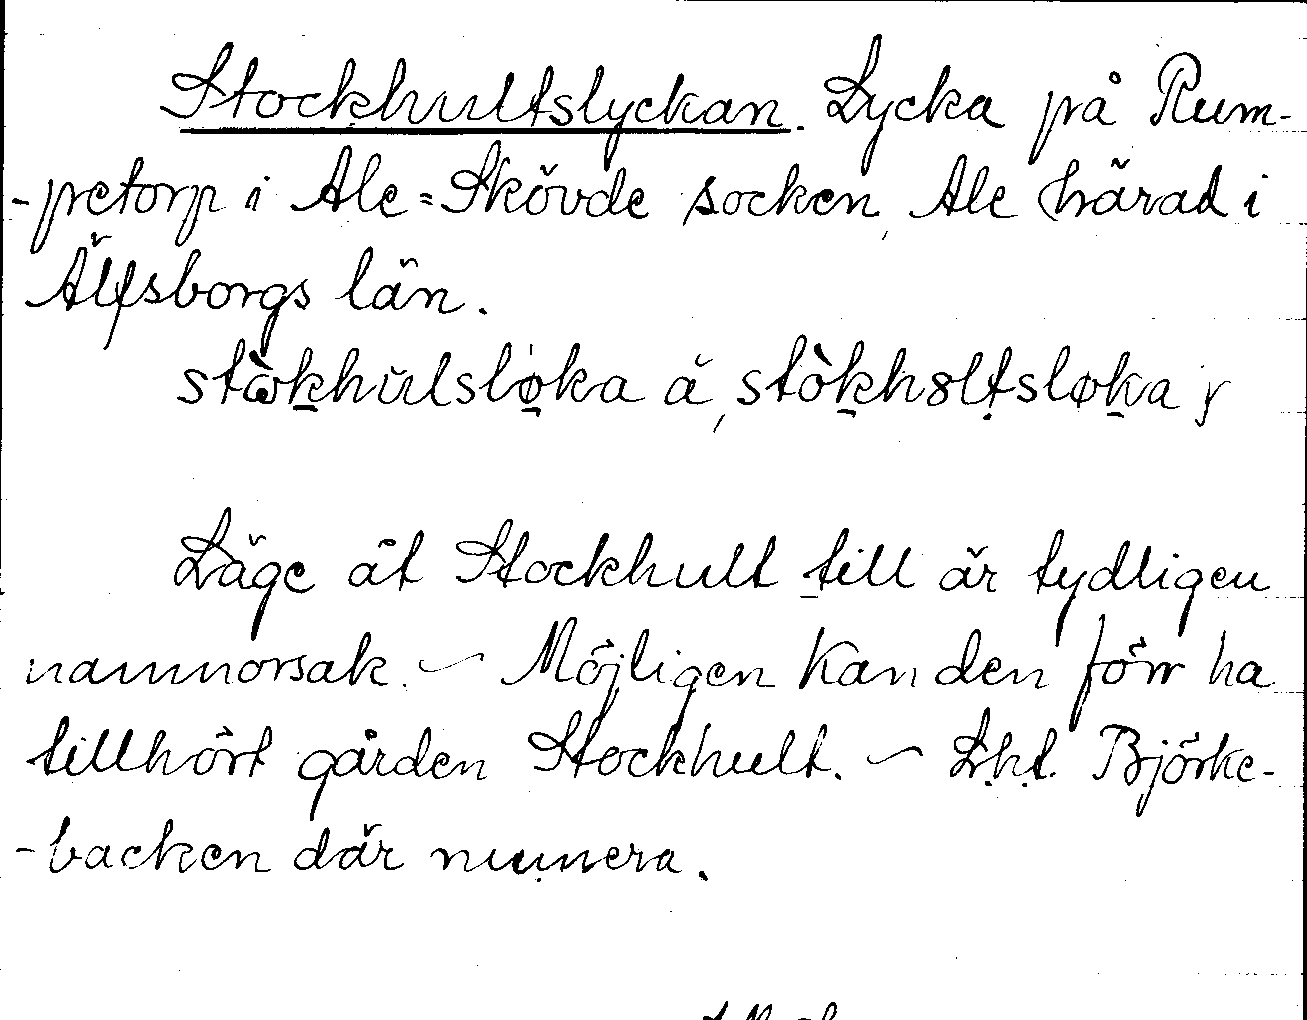 Stockhultslyckan. Lycka på Rum-
-pretorp i Ale=Skövde socken, Ale härad i
Älfsborgs län.
stòkhŭlsløka å, stòkhꝏltsløka y
Läge åt Stockhult till är tydligen
namnorsak. ~ Möjligen kan den förr ha
tillhört gården Stockhult. ~ Lht. Björke-
-backen där numera.